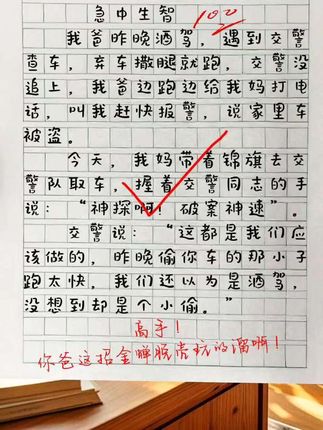 急中生智
100
我爸昨晚酒驾，遇到交警
查车，弃车撒腿就跑，交警没
追上，我爸边跑边给我妈打电
话，叫我赶快报警，说家里车
被盗。
今天，我妈带着锦旗去交
警队取车，握着交警同志的手
说：“神探啊！破案神速”。
交警说：“这都是我们应
该做的，昨晚偷你车的那小子
跑太快，我们还以为是酒驾，
没想到却是个小偷。”
高手！
你爸这招金蝉脱壳玩的溜啊！